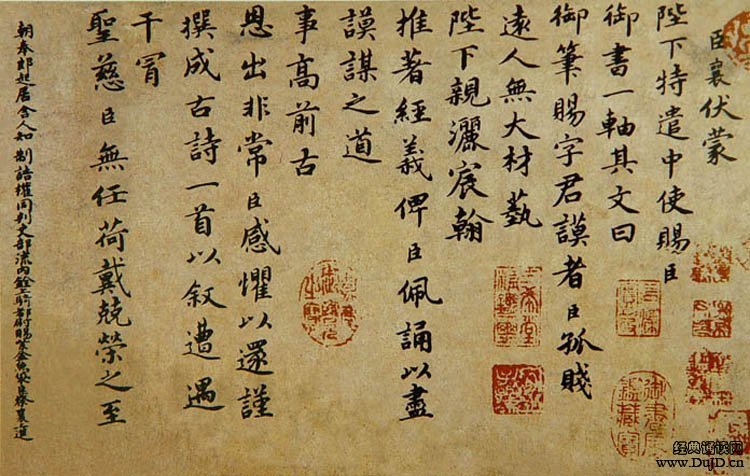 臣襄伏蒙
陛下特遣中使賜臣
御書一軸其文曰
御筆賜字君謨者臣孤賤
遠人無大材藝
陛下親灑宸翰
推著經義俾臣佩誦以盡
謨謀之道
事高前古
恩出非常臣感懼以還謹
撰成古詩一首以叙遭遇
干冒
聖慈臣無任荷戴兢榮之至
朝奉郎起居舍人知制誥權同判吏部流內銓騎都尉賜紫金魚袋臣蔡襄進
御書房鑑藏寶
经典诵读网
www.DujD.cn